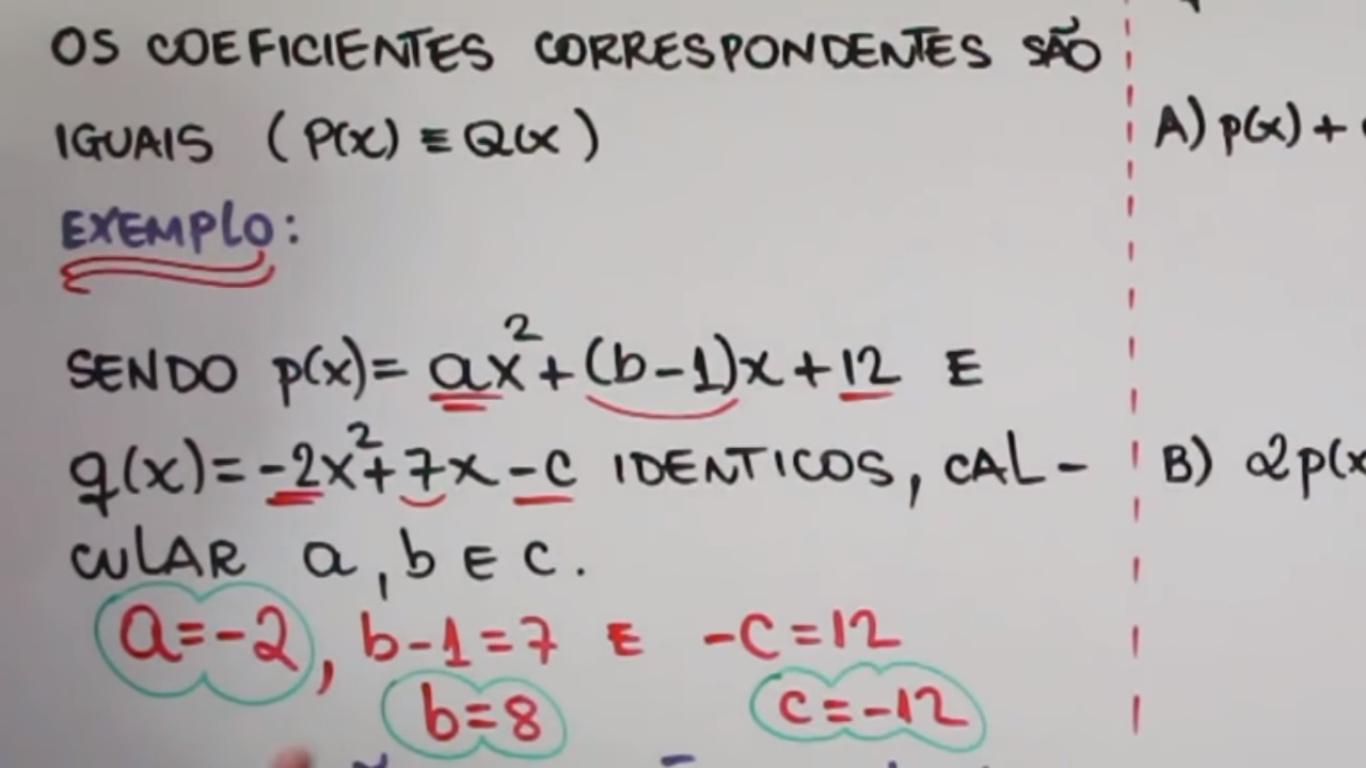 OS COEFICIENTES CORRESPONDENTES SÃO
IGUAIS (P(x) ≡ Q(x)
EXEMPLO:
SENDO p(x)= ax²+(b-1)x+12 E
q(x)=-2x²+7x-c IDENTICOS, CAL-
CULAR a, b E c.
a=-2, b-1=7 E -c=12
b=8 c=-12
A) p(x)+
B) 2p(x